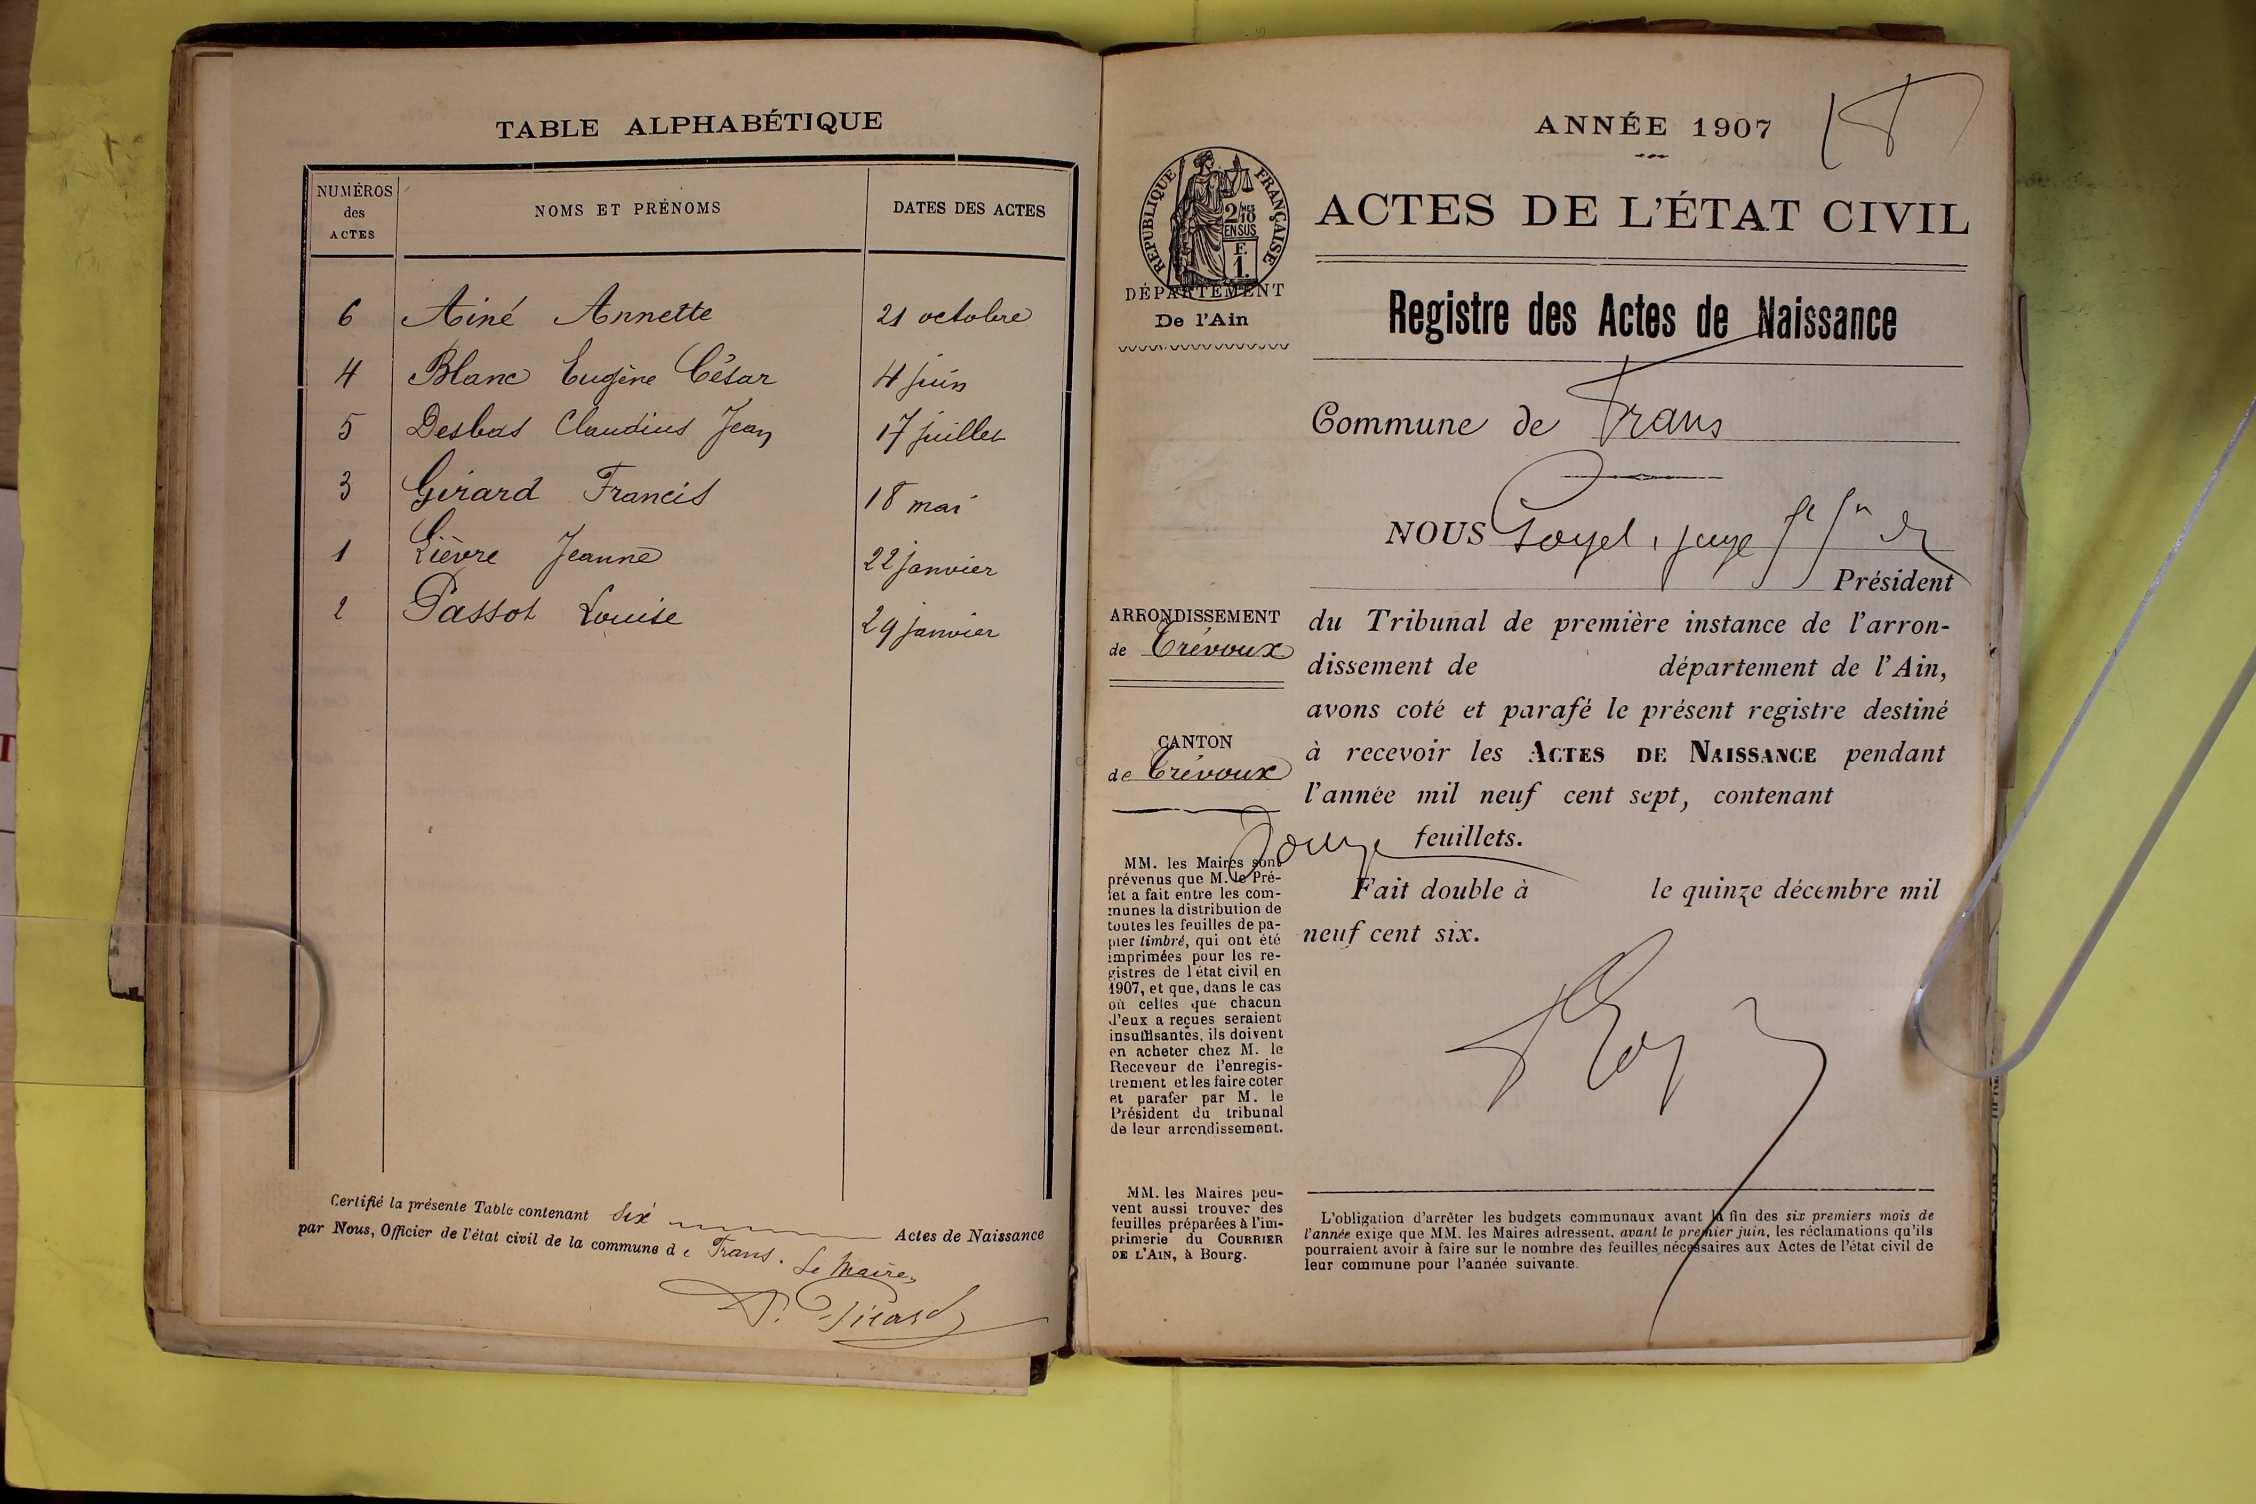 TABLE ALPHABÉTIQUE
NUMÉROS des ACTES
NOMS ET PRÉNOMS
DATES DES ACTES
6 Ainé Annette 21 octobre
4 Blanc Eugène César 4 juin
5 Desbas Claudius Jean 17 juillet
3 Girard Francis 18 mai
1 Lièvre Jeanne 22 janvier
2 Passot Louise 29 janvier
Certifié la présente Table contenant six Actes de Naissance
par Nous, Officier de l'état civil de la commune de Frans. Le Maire,
ANNÉE 1907
RÉPUBLIQUE FRANÇAISE
2/10 EN SUS
F. 1.
DÉPARTEMENT
De l'Ain
ACTES DE L'ÉTAT CIVIL
Registre des Actes de Naissance
Commune de Frans
NOUS juge
Président
ARRONDISSEMENT
de Trévoux
CANTON
de Trévoux
du Tribunal de première instance de l'arron-
dissement de département de l'Ain,
avons coté et parafé le présent registre destiné
à recevoir les ACTES DE NAISSANCE pendant
l'année mil neuf cent sept, contenant
Douze feuillets.
Fait double à le quinze décembre mil
neuf cent six.
MM. les Maires sont
prévenus que M. le Pré-
fet a fait entre les com-
munes la distribution de
toutes les feuilles de pa-
pier timbré, qui ont été
imprimées pour les re-
gistres de l'état civil en
1907, et que, dans le cas
où celles que chacun
d'eux a reçues seraient
insuffisantes, ils doivent
en acheter chez M. le
Receveur de l'enregis-
trement et les faire coter
et parafer par M. le
Président du tribunal
de leur arrondissement.
MM. les Maires peu-
vent aussi trouver des
feuilles préparées à l'im-
primerie du COURRIER
DE L'AIN, à Bourg.
L'obligation d'arrêter les budgets communaux avant la fin des six premiers mois de
l'année exige que MM. les Maires adressent, avant le premier juin, les réclamations qu'ils
pourraient avoir à faire sur le nombre des feuilles nécessaires aux Actes de l'état civil de
leur commune pour l'année suivante.